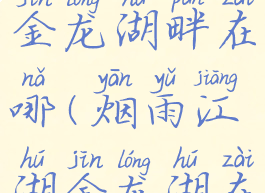 jīn lóng hú pàn zài
金龙湖畔在
nǎ yān yǔ jiāng
哪(烟雨江
hú jīn lóng hú zài
湖金龙湖在